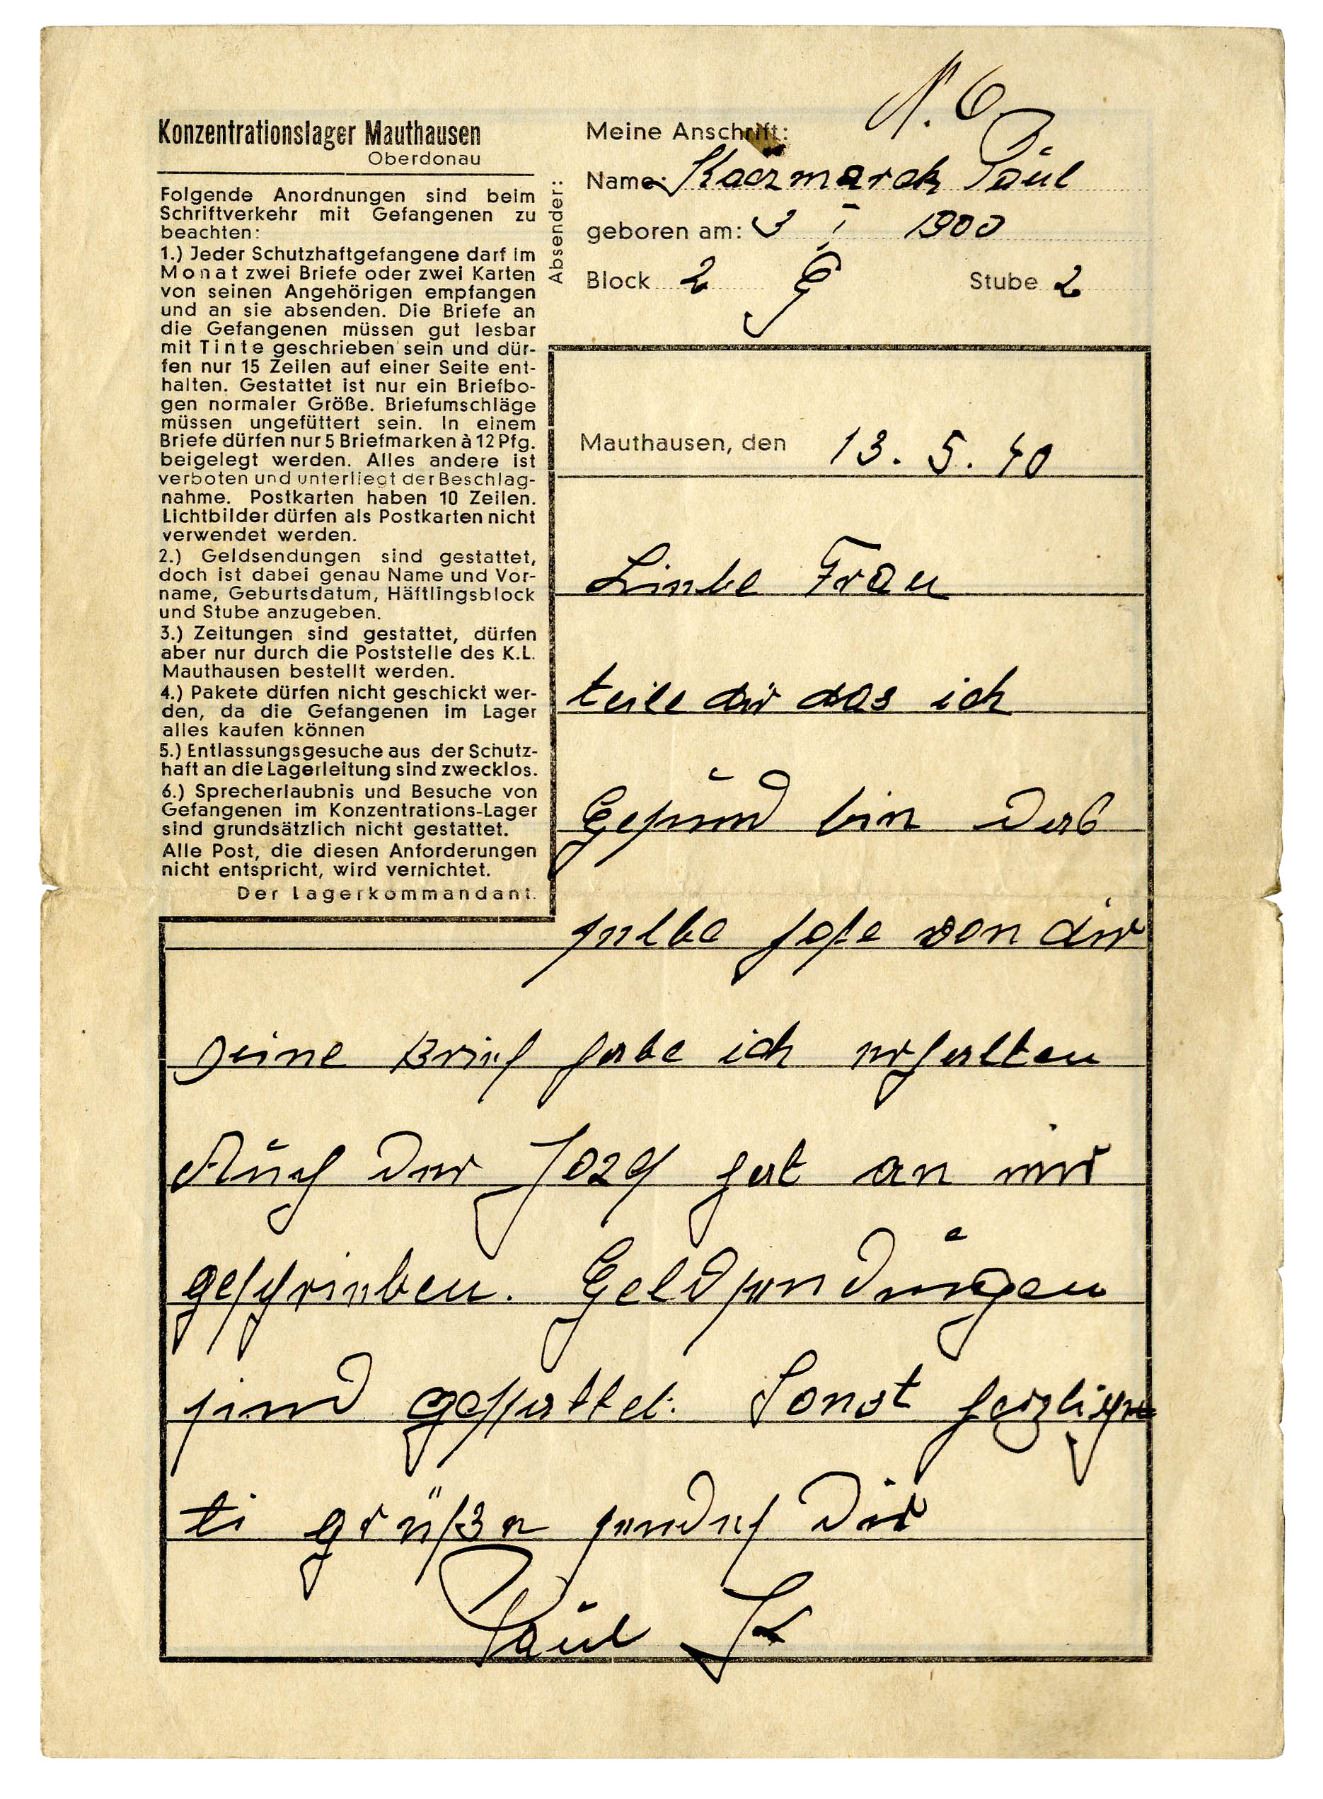 N. 6
Konzentrationslager Mauthausen
Oberdonau
Folgende Anordnungen sind beim
Schriftverkehr mit Gefangenen zu
beachten:
1.) Jeder Schutzhaftgefangene darf im
Monat zwei Briefe oder zwei Karten
von seinen Angehörigen empfangen
und an sie absenden. Die Briefe an
die Gefangenen müssen gut lesbar
mit Tinte geschrieben sein und dür-
fen nur 15 Zeilen auf einer Seite ent-
halten. Gestattet ist nur ein Briefbo-
gen normaler Größe. Briefumschläge
müssen ungefüttert sein. In einem
Briefe dürfen nur 5 Briefmarken à 12 Pfg.
beigelegt werden. Alles andere ist
verboten und unterliegt der Beschlag-
nahme. Postkarten haben 10 Zeilen.
Lichtbilder dürfen als Postkarten nicht
verwendet werden.
2.) Geldsendungen sind gestattet,
doch ist dabei genau Name und Vor-
name, Geburtsdatum, Häftlingsblock
und Stube anzugeben.
3.) Zeitungen sind gestattet, dürfen
aber nur durch die Poststelle des K.L.
Mauthausen bestellt werden.
4.) Pakete dürfen nicht geschickt wer-
den, da die Gefangenen im Lager
alles kaufen können
5.) Entlassungsgesuche aus der Schutz-
haft an die Lagerleitung sind zwecklos.
6.) Sprecherlaubnis und Besuche von
Gefangenen im Konzentrations-Lager
sind grundsätzlich nicht gestattet.
Alle Post, die diesen Anforderungen
nicht entspricht, wird vernichtet.
Der Lagerkommandant.
Absender:
Meine Anschrift:
Name: Kaczmarek Paul
geboren am: 3 I 1900
Block 2 G Stube 2
Mauthausen, den 13. 5. 40
Liebe Frau
teile dir das ich
Gesund bin das
selbe hofe von dir
Deine Brief habe ich erhalten
Auch der Jozef hat an mir
geschrieben. Geldsendungen
sind gestattet. Sonst herzlichen
grüße sendet Dir
Paul K